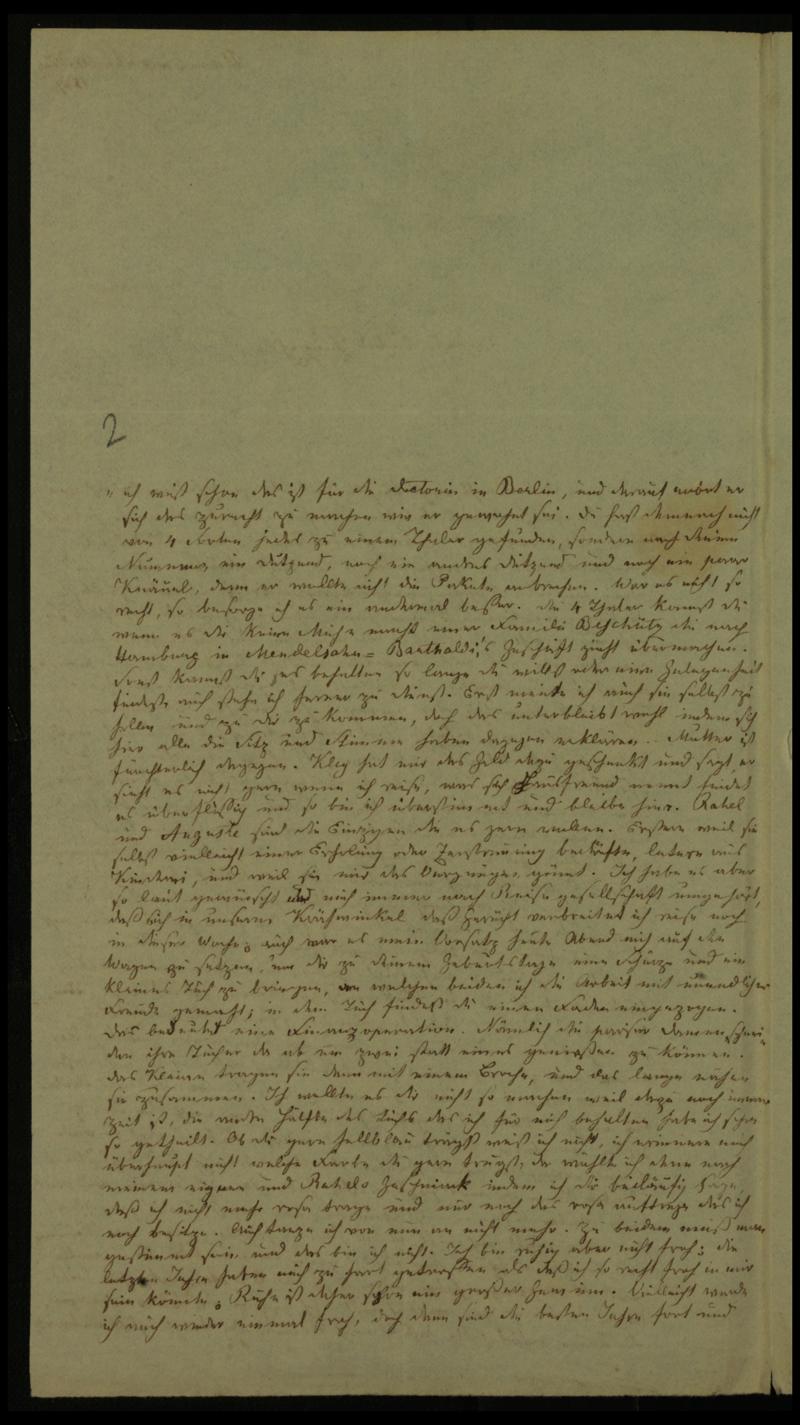 2
„ ich weiß schon das ist für die Doctorin in Berlin, und darauf
sich das zurecht zu machen wie er gewohnt sei. Du hast demnach nicht
von 4 Sorten jedes zu einem Thaler gefunden, sondern nach seinen
Nummern ein Dutzend, noch ein andres Dutzend und noch ein paar
Knäuel, denn er wollte nicht die Pakete anbrechen. War es nicht so
recht, so besorge ich es ein andermal besser. Die 4 Thaler kannst du
wenn es dir keine Mühe macht einer Familie Beschütz die nach
Hamburg in Mendelsohn= Bartholdi's Geschäft zieht übermachen.
Sonst kannst du es behalten so lange du willst oder eine Gelegenheit
findest, auch stehe ich ferner zu Dienst. Erst meinte ich auch sie selbst zu
holen und zu dir zu kommen, doch das unterbleibt wohl indem sich
hier alle die Sitz und Stimme haben dagegen erklären. Mutter ist
fürchterlich dagegen. Kley hat mir das Geld dazu geschenkt und sagt, er
sieht es nicht gern wenn ich reise, was sich Hausfreund nennt findet
es überflüssig und so bin ich überstimmt und bleibe hier. Rahel
und Auguste sind die Einzigen die es gern wollen. Erstere weil sie
selbst vielleicht einer Erholung oder Zerstreuung bedürfte, letztre aus
Kinderei, und weil sie mir das Vergnügen gönnt. Ich habe es aber
so laut gewünscht und mich immer nach Reise gesellschaft umgehört,
daß sich in unserm Krähwinkel das Gerücht verbreitet ich reise noch
in dieser Woche; auch war es mein Vorsatz heute Abend mich auf den
Wagen zu setzen, um dir zu deinem Geburtstage eine Schürze und ein
kleines Tuch zu bringen, an welchen beiden ich die Arbeit mit unendlicher
Freude gemacht; in dem Tuch findest du einen Faden eingezogen.
Das bedeutet eine Finanzoperation. Nämlich die pariser Damen schnei¬
den ihre Tücher da ab um zwei statt eines genießen zu können.
Das kleine tragen sie dann mit einem Broche, und das lange nähen
sie zusammen. Ich wollte es dir nicht so machen weil dazu noch immer
Zeit ist, die andre Hälfte des Tuchs das ich für mich behalten habe ich schon
so getheilt. Ob du gern hellblau trägst weiß ich nicht, ich erinnere mich
überhaupt nicht welche Farbe du gern trugst, da wählte ich denn nach
meinem eignen und Rahels Geschmack indem ich dir beiläufig sage
daß ich nicht mehr rosa trage und nur noch das rosa auftrage das ich
noch besitze. Auch tanze ich von nun an nicht mehr. Zu beidem muß man
gestimmt sein und das bin ich nicht. Ich bin ruhig aber nicht froh; die
letzten Jahre haben mich zu hart getroffen als daß ich so recht froh in mir
sein könnte; Ruhe ist daher schon ein großer Gewinn. Vielleicht werde
ich auch wieder einmal froh, doch dann sind die besten Jahre fort und